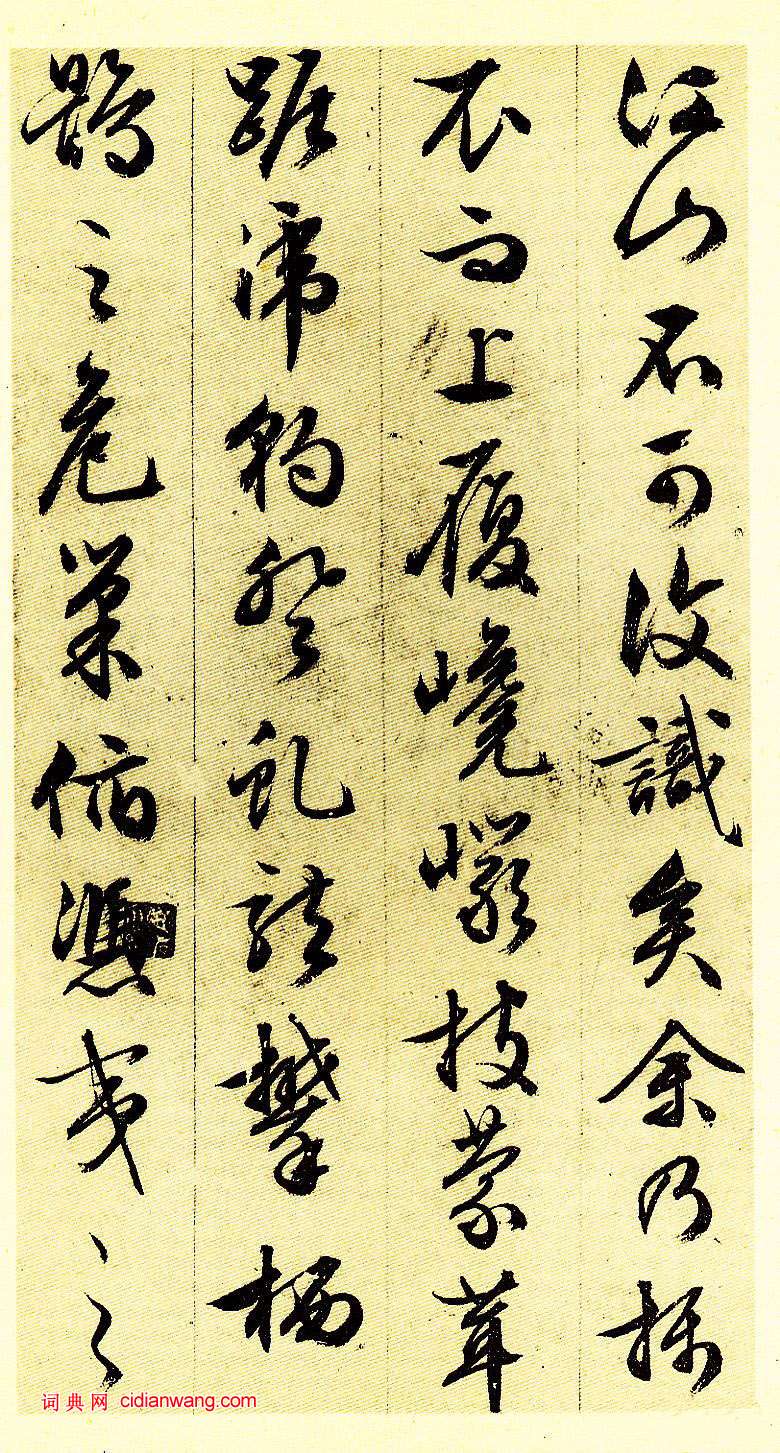 江山不可復識矣余乃攝
衣而上履巉巖披蒙茸
踞虎豹登虬龍攀栖
鶻之危巢俯憑夷之
词典网 cidianwang.com